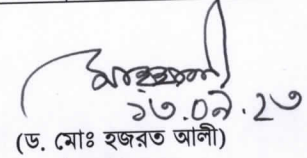 ১৩.০৯.২৩
(ড. মোঃ হজরত আলী)